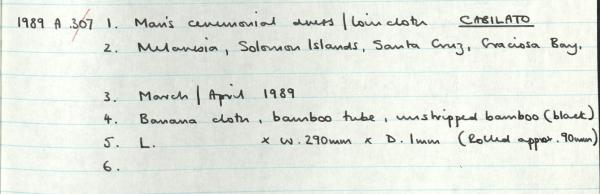 1989 A .307 1. Man's ceremonial dress / loin cloth CABILATO
2. Melanesia, Solomon Islands, Santa Cruz, Graciosa Bay.
3. March / April 1989
4. Banana cloth, bamboo tube, unstripped bamboo (black)
5. L. x W. 290mm x D. 1mm (Rolled approx. 90mm)
6.